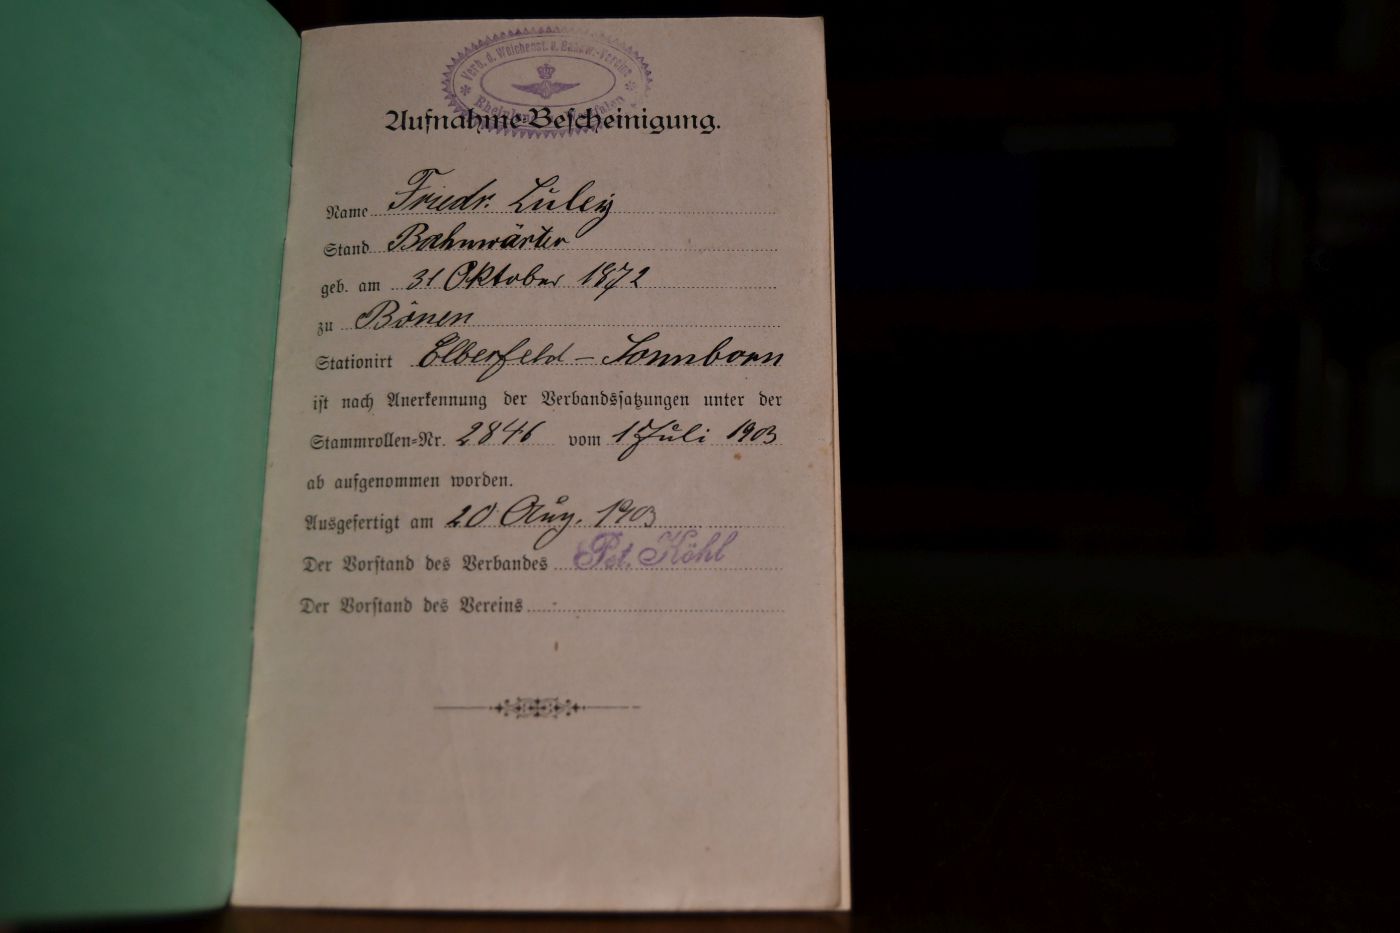 Verb. d. Weichenst. u. Bahnw.-Vereine
Aufnahme-Bescheinigung.
Name Friedr. Luley
Stand Bahnwärter
geb. am 31 Oktober 1872
zu Bönen
Stationirt Elberfeld - Sonnborn
ist nach Anerkennung der Verbandssatzungen unter der
Stammrollen-Nr. 2846 vom 1 Juli 1903
ab aufgenommen worden.
Ausgefertigt am 20 Aug. 1903
Der Vorstand des Verbandes Pet. Köhl
Der Vorstand des Vereins